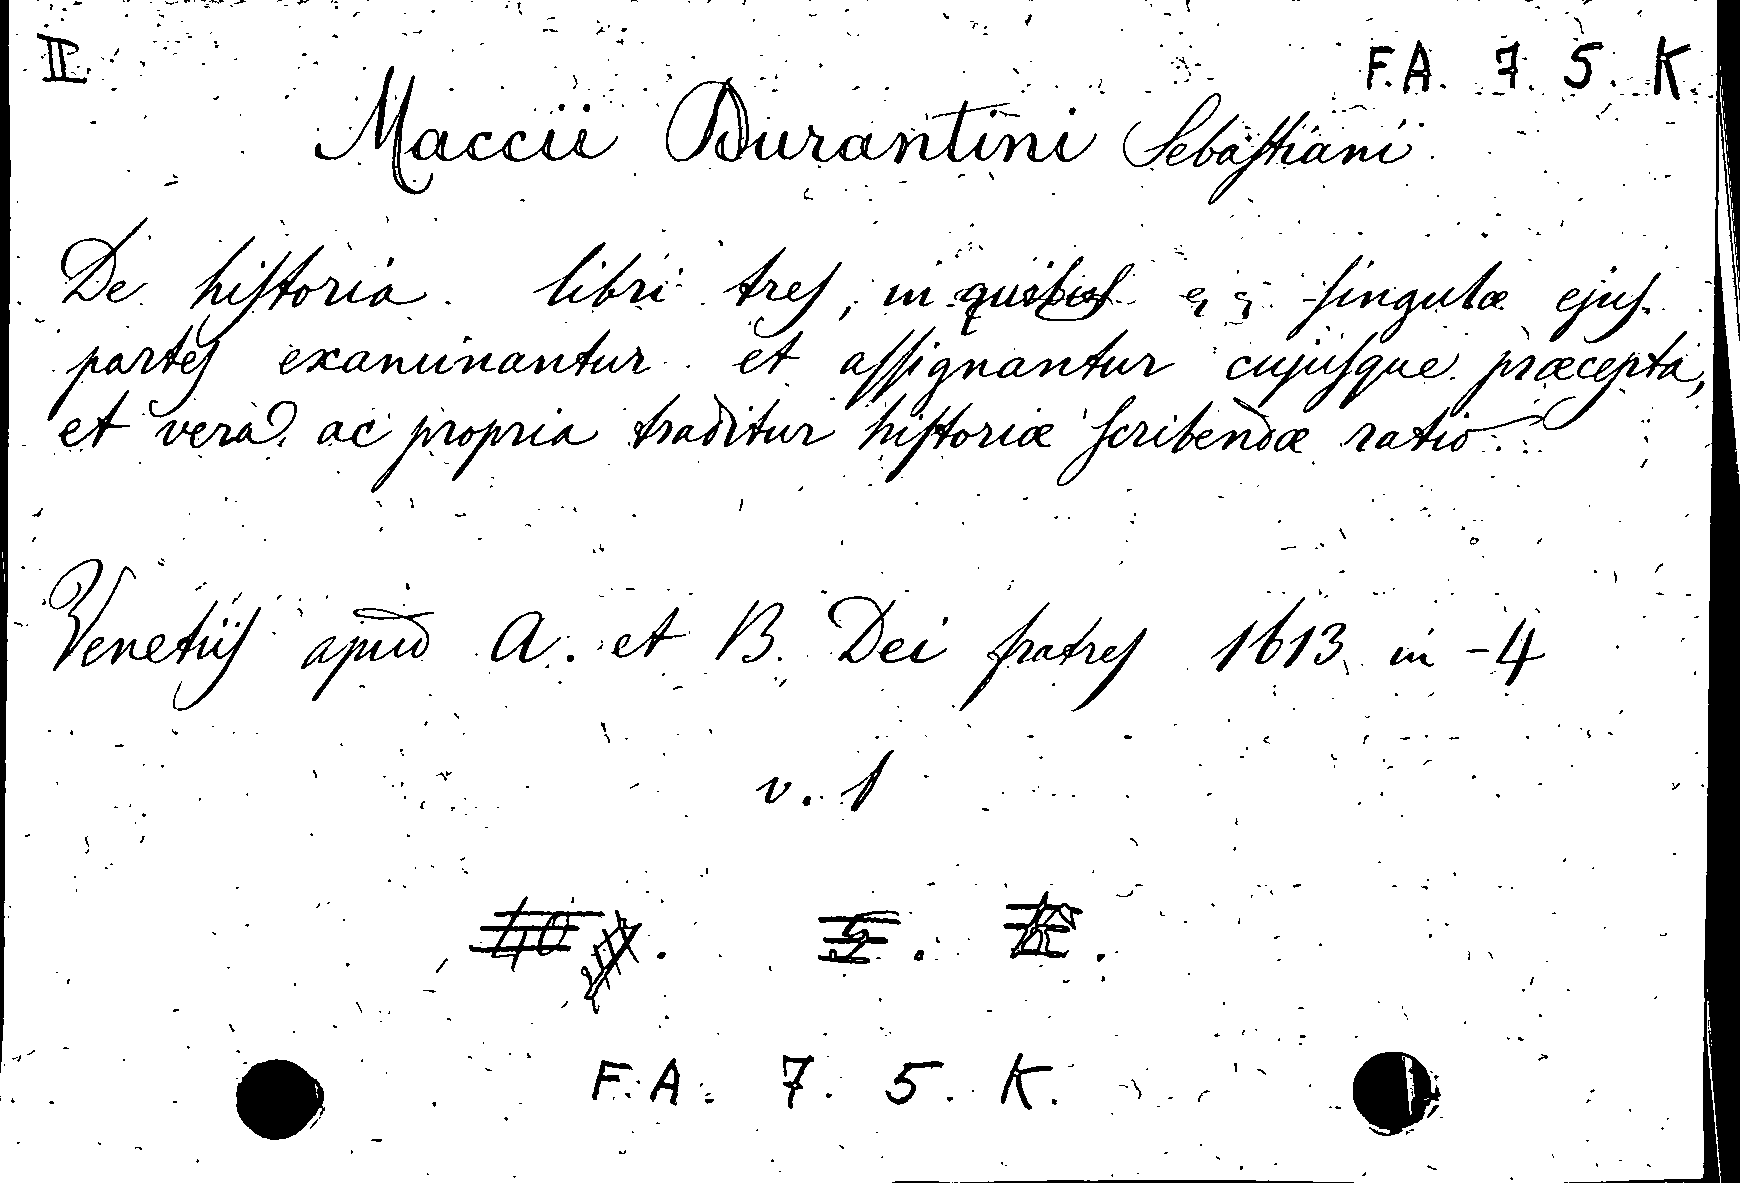 II F.A. 7. 5. K
Maccii Durantini Sebastiani
De historia libri tres, in quibus singulæ ejus
partes examinantur et assignantur cujusque præcepta,
et vera ac propria traditur historiæ scribendæ ratio
Venetiis apud A. et B. Dei fratres 1613 in -4
v. 1
F.A. 7. 5. K.